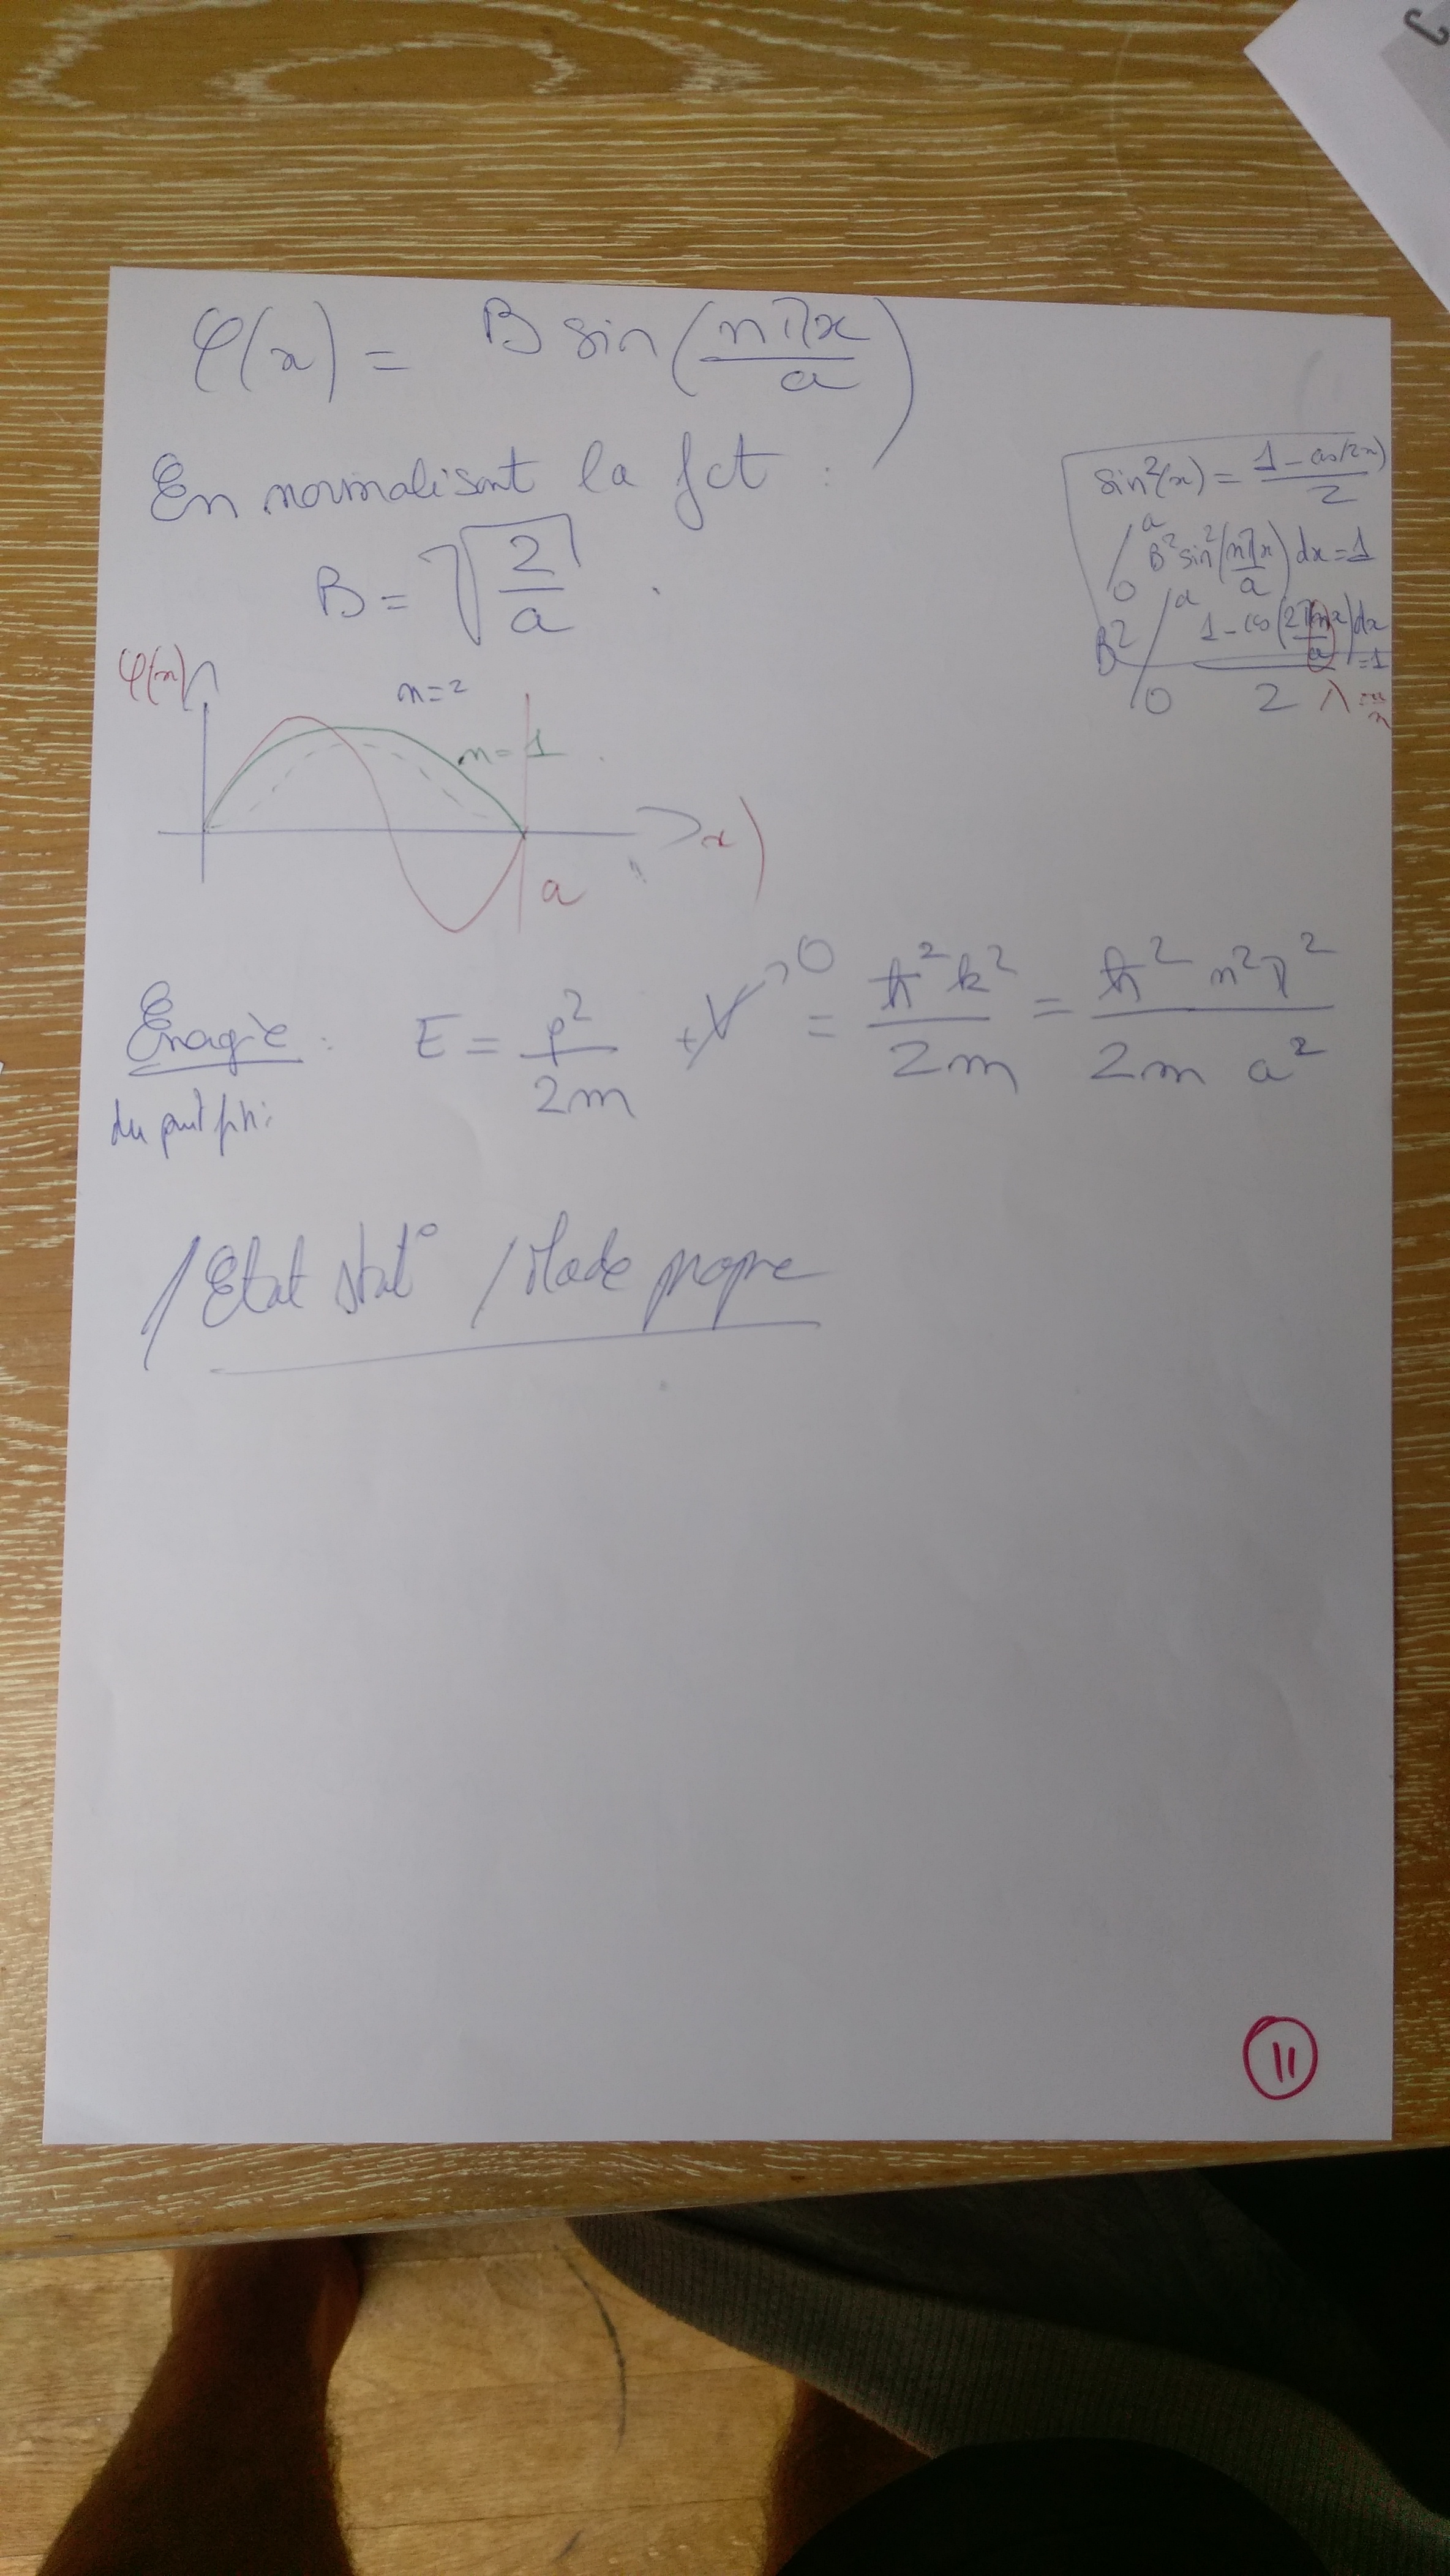 φ(x) = B sin(nπx/a)
En normalisant la fct :
B = √(2/a) .
sin²(x) = (1 - cos(2x))/2
∫₀ᵃ B² sin²(nπx/a) dx = 1
B² ∫₀ᵃ (1 - cos(2πnx/a))/2 dx = 1
λ = a/n
φ(x)
n=2
n=1
x
a
Energie : E = p²/2m + V → 0 = ħ²k²/2m = ħ²n²π²/2m a²
du
/ Etat stat° / Mode propre
11